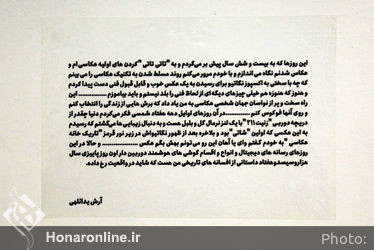 این روزها که به بیست و شش سال پیش برمی‌گردم و به "تاتی تاتی" کردن های اولیه عکاسی ام و
عکاس شدنم نگاه می اندازم و با خودم مرور می‌کنم روند مسلط شدن به تکنیک عکاسی را می بینم
که چه با سختی به اکسپوز نگاتیو برای رسیدن به یک عکس خوب و قابل قبول فنی دست پیدا کردم
و هنوز که هنوزه هم خیلی چیزهای دیگه ای از لحاظ فنی را بلد نیستم و باید بیاموزم .................. این
راه سخت و پر از نواسان جهان شخصی عکاسی به من یاد داد که برش هایی از زندگی را انتخاب کنم
و روی آنها فوکوس کنم ..................در آن روزهای اوایل دهه هفتاد شمسی فکر می‌کردم دنیا چقدر از
دریچه دوربین "زنیت ۲۱۱" با یک لنز نرمال کل و بلبل هست و به دنبال زیبایی ها می‌گشتم که رسیدم
به این عکس که اولین "شاتی" بود و بلاخره بعد از ظهور نگاتیواش در زیر نور قرمز "تاریک خانه
عکاسی" به خودم گفتم وای یا آمان این رو می تونم بهش بگم عکس .................. و حالا در این
روزهای رسانه های دیجیتال و انواع و اقسام گوشی های هوشمند دوربین دار اون روز پاییزی سال
هزاروسیصدوهفتاد داستانی از افسانه های تاریخی من هست که شاید در واقعیت رخ داده.
آرش یداللهی
Honaronline.ir
Photo: